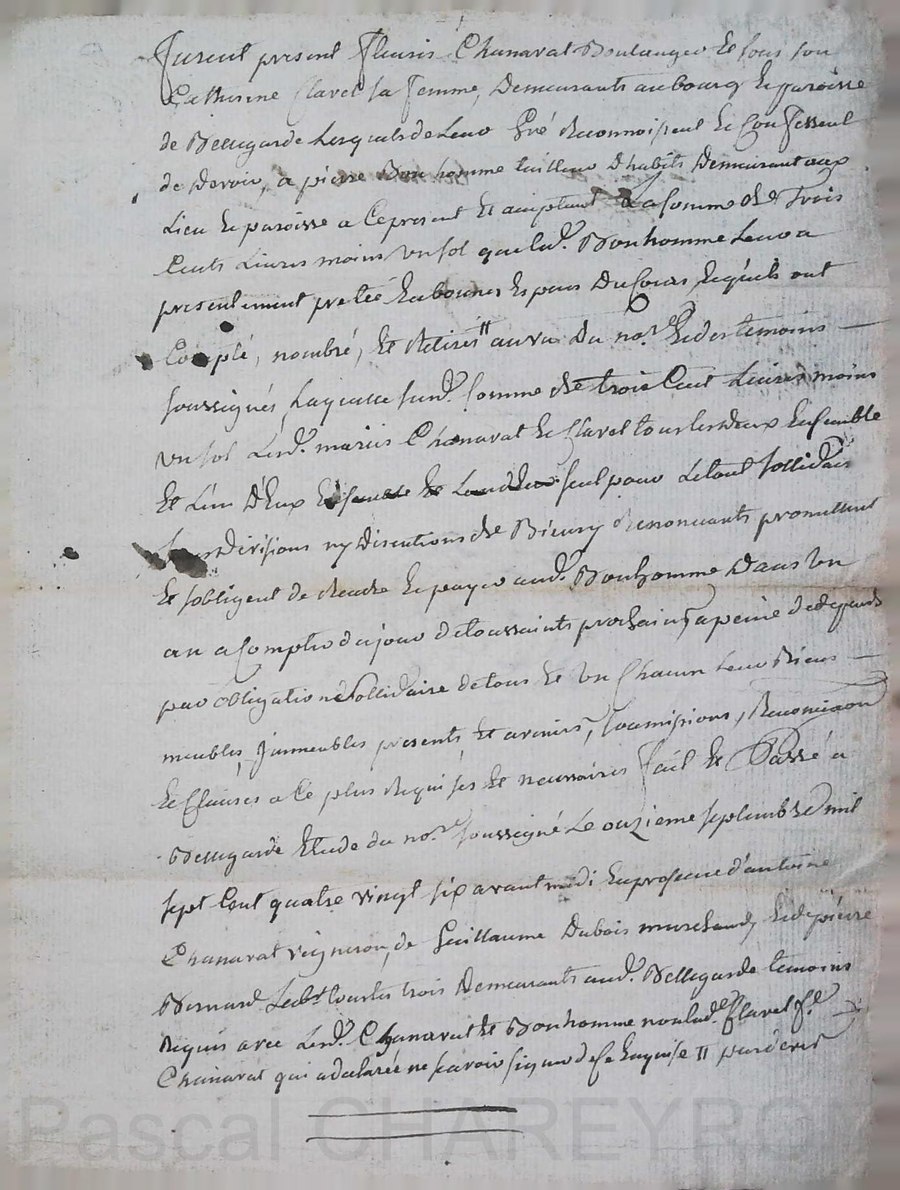 furent present fleuris Chanavat Boulanger Et sous son
Catherine Clavel sa femme, Demeurants au bourg Et paroisse
de Bellegarde Lesquels de Leur Gré Reconnoissent Et Confessent
de Devoir, a pierre Bonhomme tailleur D'habits Demeurant aux
Lieu Et paroisse a Ce present Et aceptant La somme de Trois
Cents Livres moins un sol que led. Bonhomme Leur a
presentement pretée En bonnes Especes Du Cours Lequels ont
Compté, nombré, Et Retirés au vu Du nore Et des temoins
soussignés Laquelle susd. somme de trois Cent Livres moins
un sol Lesd. mariés Chanavat Et Clavel tous les deux Ensemble
Et L'un D'Eux seul pour Le tout sollidaire
Divisions ny Discutions de Renoncants promettent
Et s'obligent de Rendre Et payer aud. Bonhomme Dans un
an a Compter du jour de toussaints prochain, a peine de depends
par obligation sollidaire de tous Et un Chacun Leur Biens
meubles, jmmeubles presents Et avenirs, soumissions, Renonciaon
Et Clauses a Ce plus Requises Et necessaires fait Et Passé a
Bellegarde Etude du nore soussigné Le onzieme septembre mil
sept Cent quatre vingt six avant midi En presence d'antoine
Chanavat vigneron, de Guillaume Dubois marchand, Et de pierre
Bernard tous trois Demeurants aud. Bellegarde temoins
Requis avec Lesd. Chanavat Et Bonhomme non lad. Clavel fe
Chanavat qui a declarée ne scavoir signer de ce Enquise
Pascal CHAREYRON